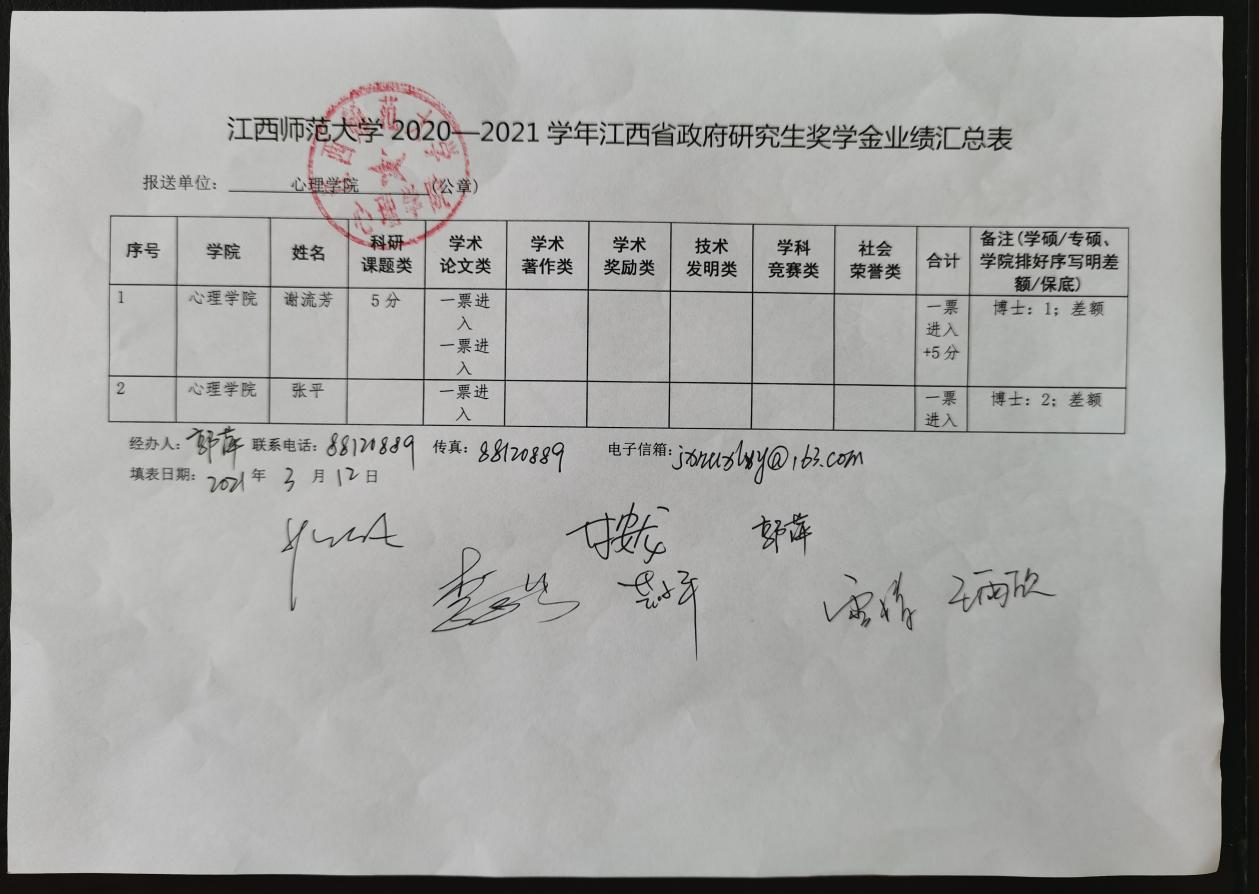 江西师范大学 2020—2021 学年江西省政府研究生奖学金业绩汇总表
报送单位： 心理学院 （公章）
序号 学院 姓名 科研课题类 学术论文类 学术著作类 学术奖励类 技术发明类 学科竞赛类 社会荣誉类 合计 备注(学硕/专硕、学院排好序写明差额/保底)
1 心理学院 谢流芳 5 分 一票进入 一票进入 一票进入+5 分 博士：1；差额
2 心理学院 张平 一票进入 一票进入 博士：2；差额
经办人：郭萍 联系电话：88120889 传真：88120889 电子信箱：jxnuxlxy@163.com
填表日期：2021 年 3 月 12 日
郭萍
王丙欣